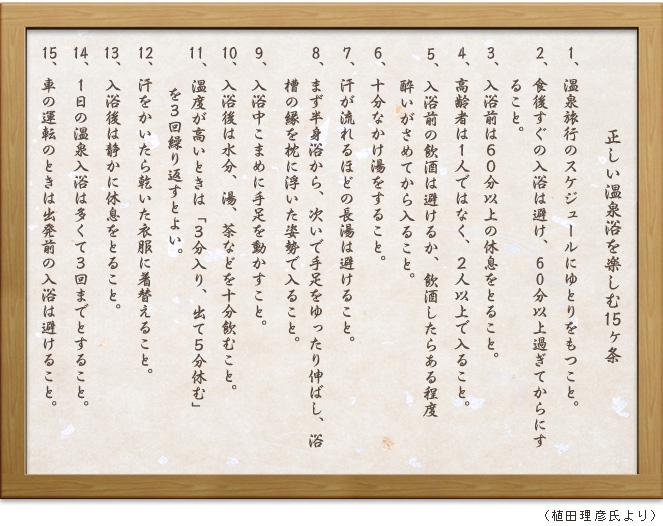 正しい温泉浴を楽しむ15ヶ条
1、温泉旅行のスケジュールにゆとりをもつこと。
2、食後すぐの入浴は避け、60分以上過ぎてからにす
ること。
3、入浴前は60分以上の休息をとること。
4、高齢者は1人ではなく、2人以上で入ること。
5、入浴前の飲酒は避けるか、飲酒したらある程度
酔いがさめてから入ること。
6、十分なかけ湯をすること。
7、汗が流れるほどの長湯は避けること。
8、まず半身浴から、次いで手足をゆったり伸ばし、浴
槽の縁を枕に浮いた姿勢で入ること。
9、入浴中こまめに手足を動かすこと。
10、入浴後は水分、湯、茶などを十分飲むこと。
11、温度が高いときは「3分入り、出て5分休む」
を3回繰り返すとよい。
12、汗をかいたら乾いた衣服に着替えること。
13、入浴後は静かに休息をとること。
14、1日の温泉入浴は多くて3回までとすること。
15、車の運転のときは出発前の入浴は避けること。
（植田理彦氏より）